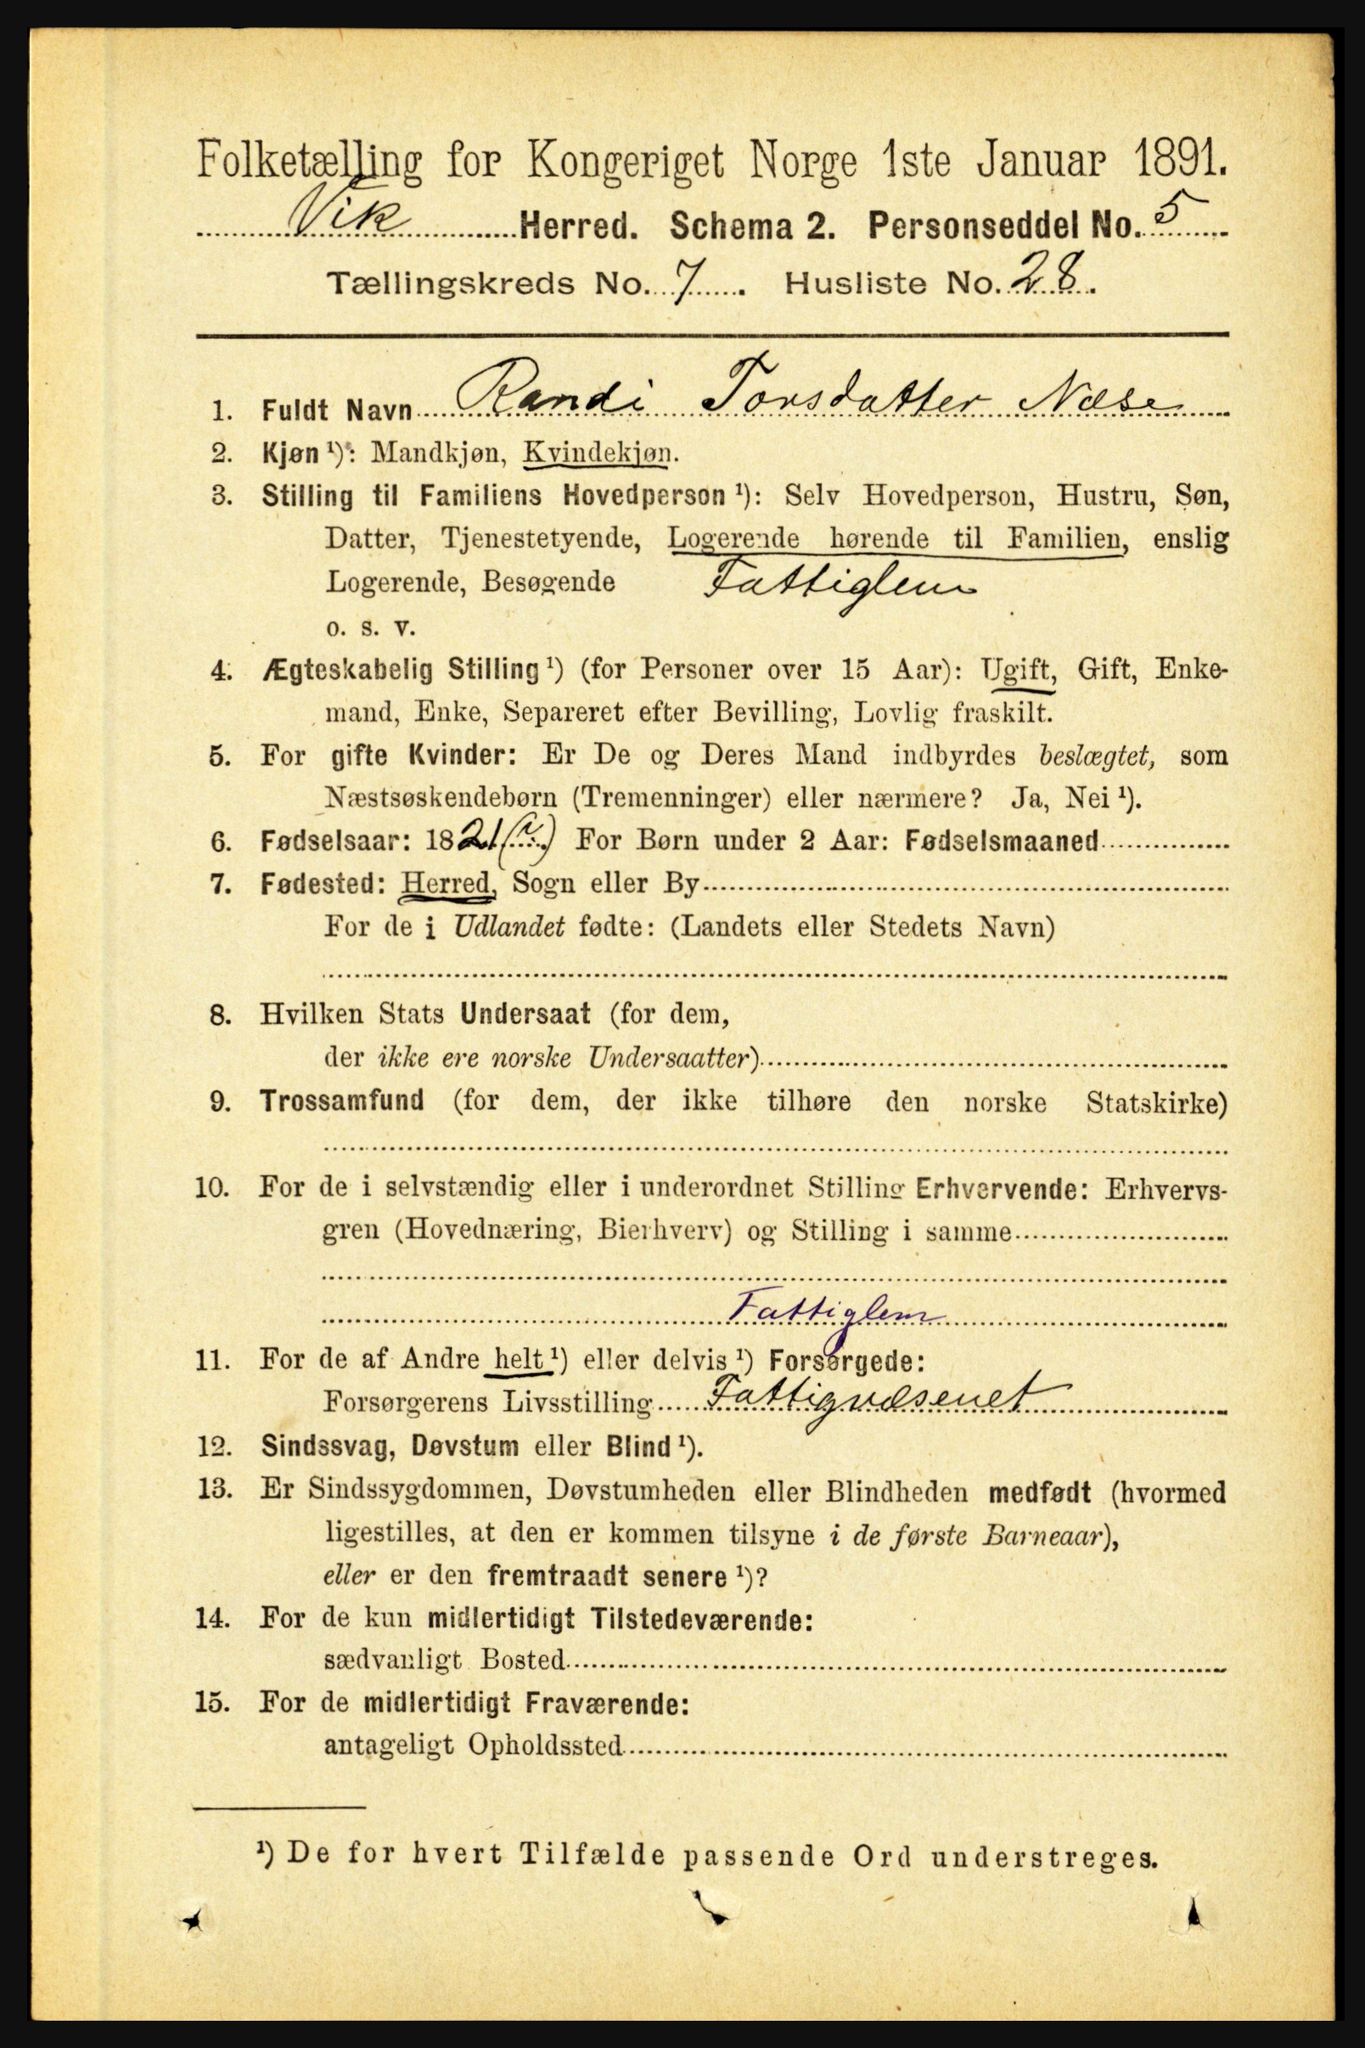 Folketælling for Kongeriget Norge 1ste Januar 1891.
Vik Herred. Schema 2. Personseddel No. 5
Tællingskreds No. 7. Husliste No. 28.
1. Fuldt Navn Randi Torsdatter Næse
2. Kjøn ¹): Mandkjøn, Kvindekjøn.
3. Stilling til Familiens Hovedperson ¹): Selv Hovedperson, Hustru, Søn,
Datter, Tjenestetyende, Logerende hørende til Familien, enslig
Logerende, Besøgende Fattiglem
o. s. v.
4. Ægteskabelig Stilling ¹) (for Personer over 15 Aar): Ugift, Gift, Enke-
mand, Enke, Separeret efter Bevilling, Lovlig fraskilt.
5. For gifte Kvinder: Er De og Deres Mand indbyrdes beslægtet, som
Næstsøskendebørn (Tremenninger) eller nærmere? Ja, Nei ¹).
6. Fødselsaar: 1821 For Børn under 2 Aar: Fødselsmaaned
7. Fødested: Herred, Sogn eller By
For de i Udlandet fødte: (Landets eller Stedets Navn)
8. Hvilken Stats Undersaat (for dem,
der ikke ere norske Undersaatter)
9. Trossamfund (for dem, der ikke tilhøre den norske Statskirke)
10. For de i selvstændig eller i underordnet Stilling Erhvervende: Erhvervs-
gren (Hovednæring, Bierhverv) og Stilling i samme
Fattiglem
11. For de af Andre helt ¹) eller delvis ¹) Forsørgede:
Forsørgerens Livsstilling Fattigvæsenet
12. Sindssvag, Døvstum eller Blind ¹).
13. Er Sindssygdommen, Døvstumheden eller Blindheden medfødt (hvormed
ligestilles, at den er kommen tilsyne i de første Barneaar),
eller er den fremtraadt senere ¹)?
14. For de kun midlertidigt Tilstedeværende:
sædvanligt Bosted
15. For de midlertidigt Fraværende:
antageligt Opholdssted
¹) De for hvert Tilfælde passende Ord understreges.